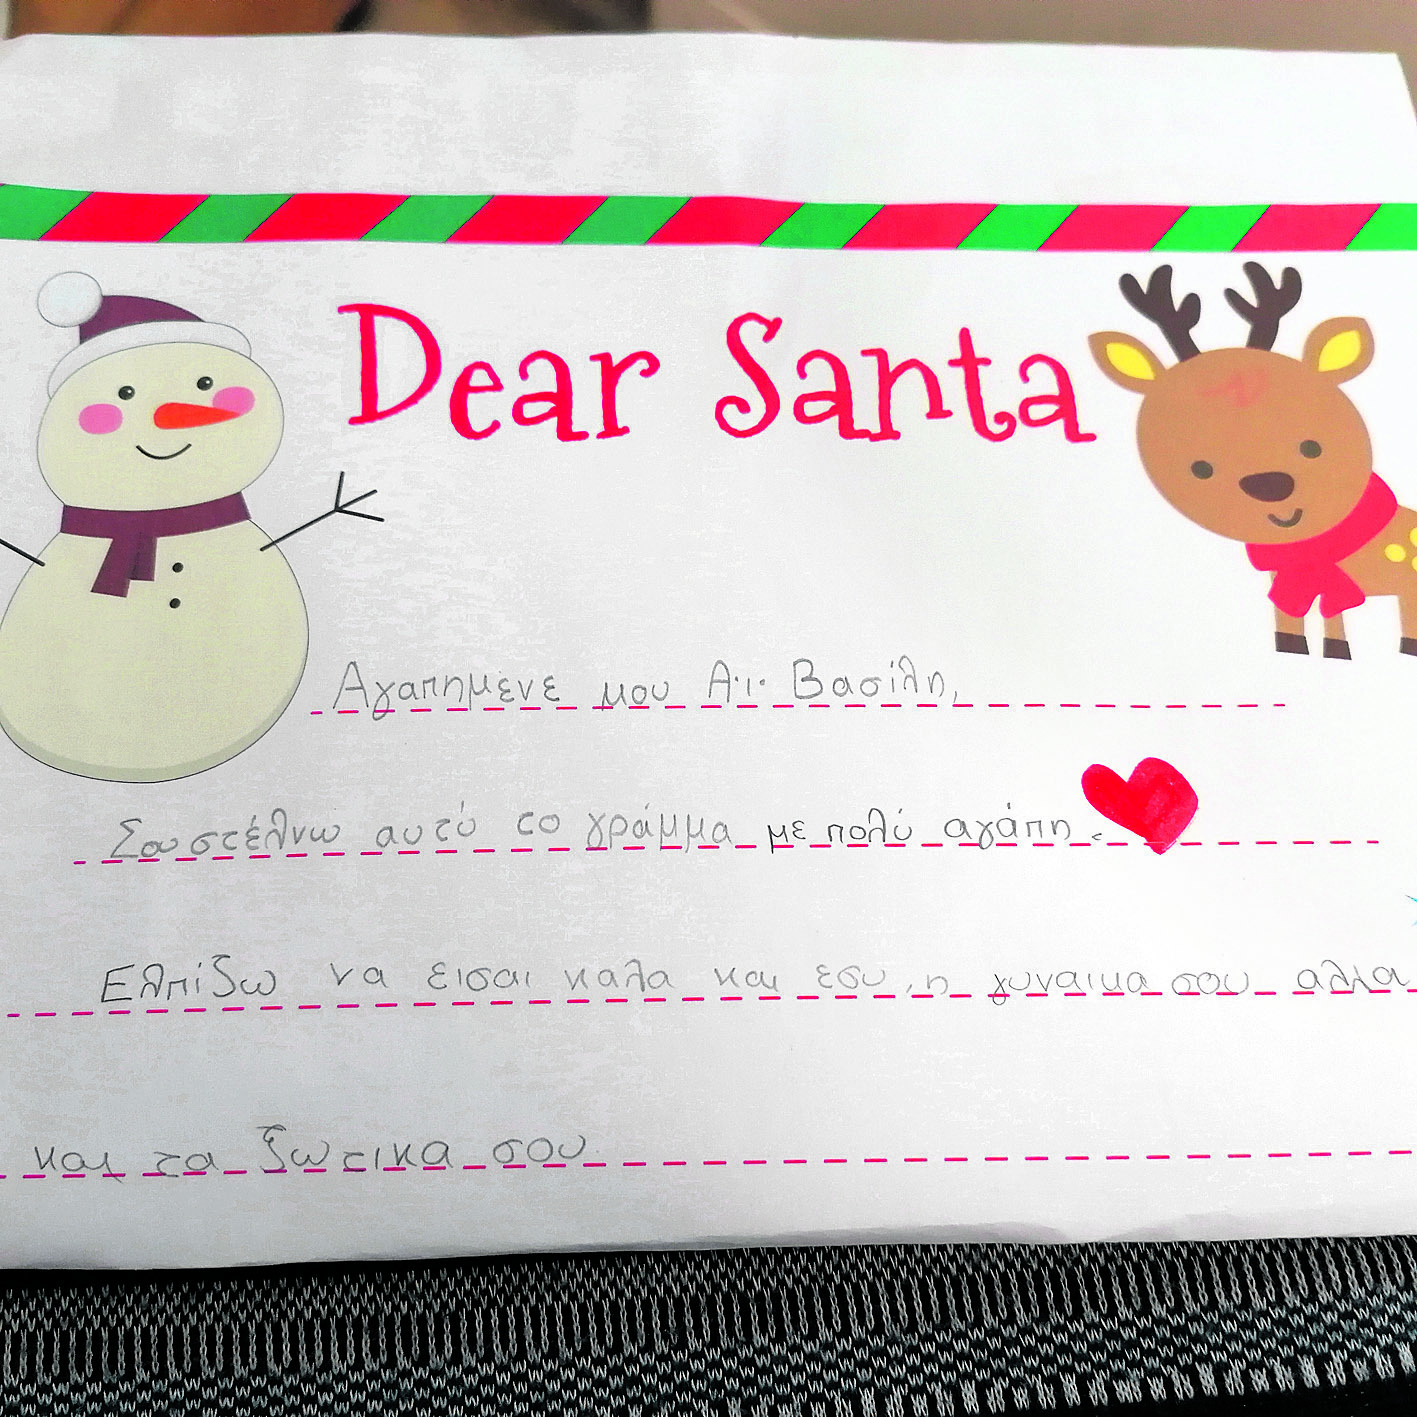 Dear Santa
Αγαπημένε μου Αϊ Βασίλη,
Σου στέλνω αυτό το γράμμα με πολύ αγάπη.
Ελπίζω να εισαι καλα και εσυ, η γυναικα σου αλλα
και τα ξωτικα σου.